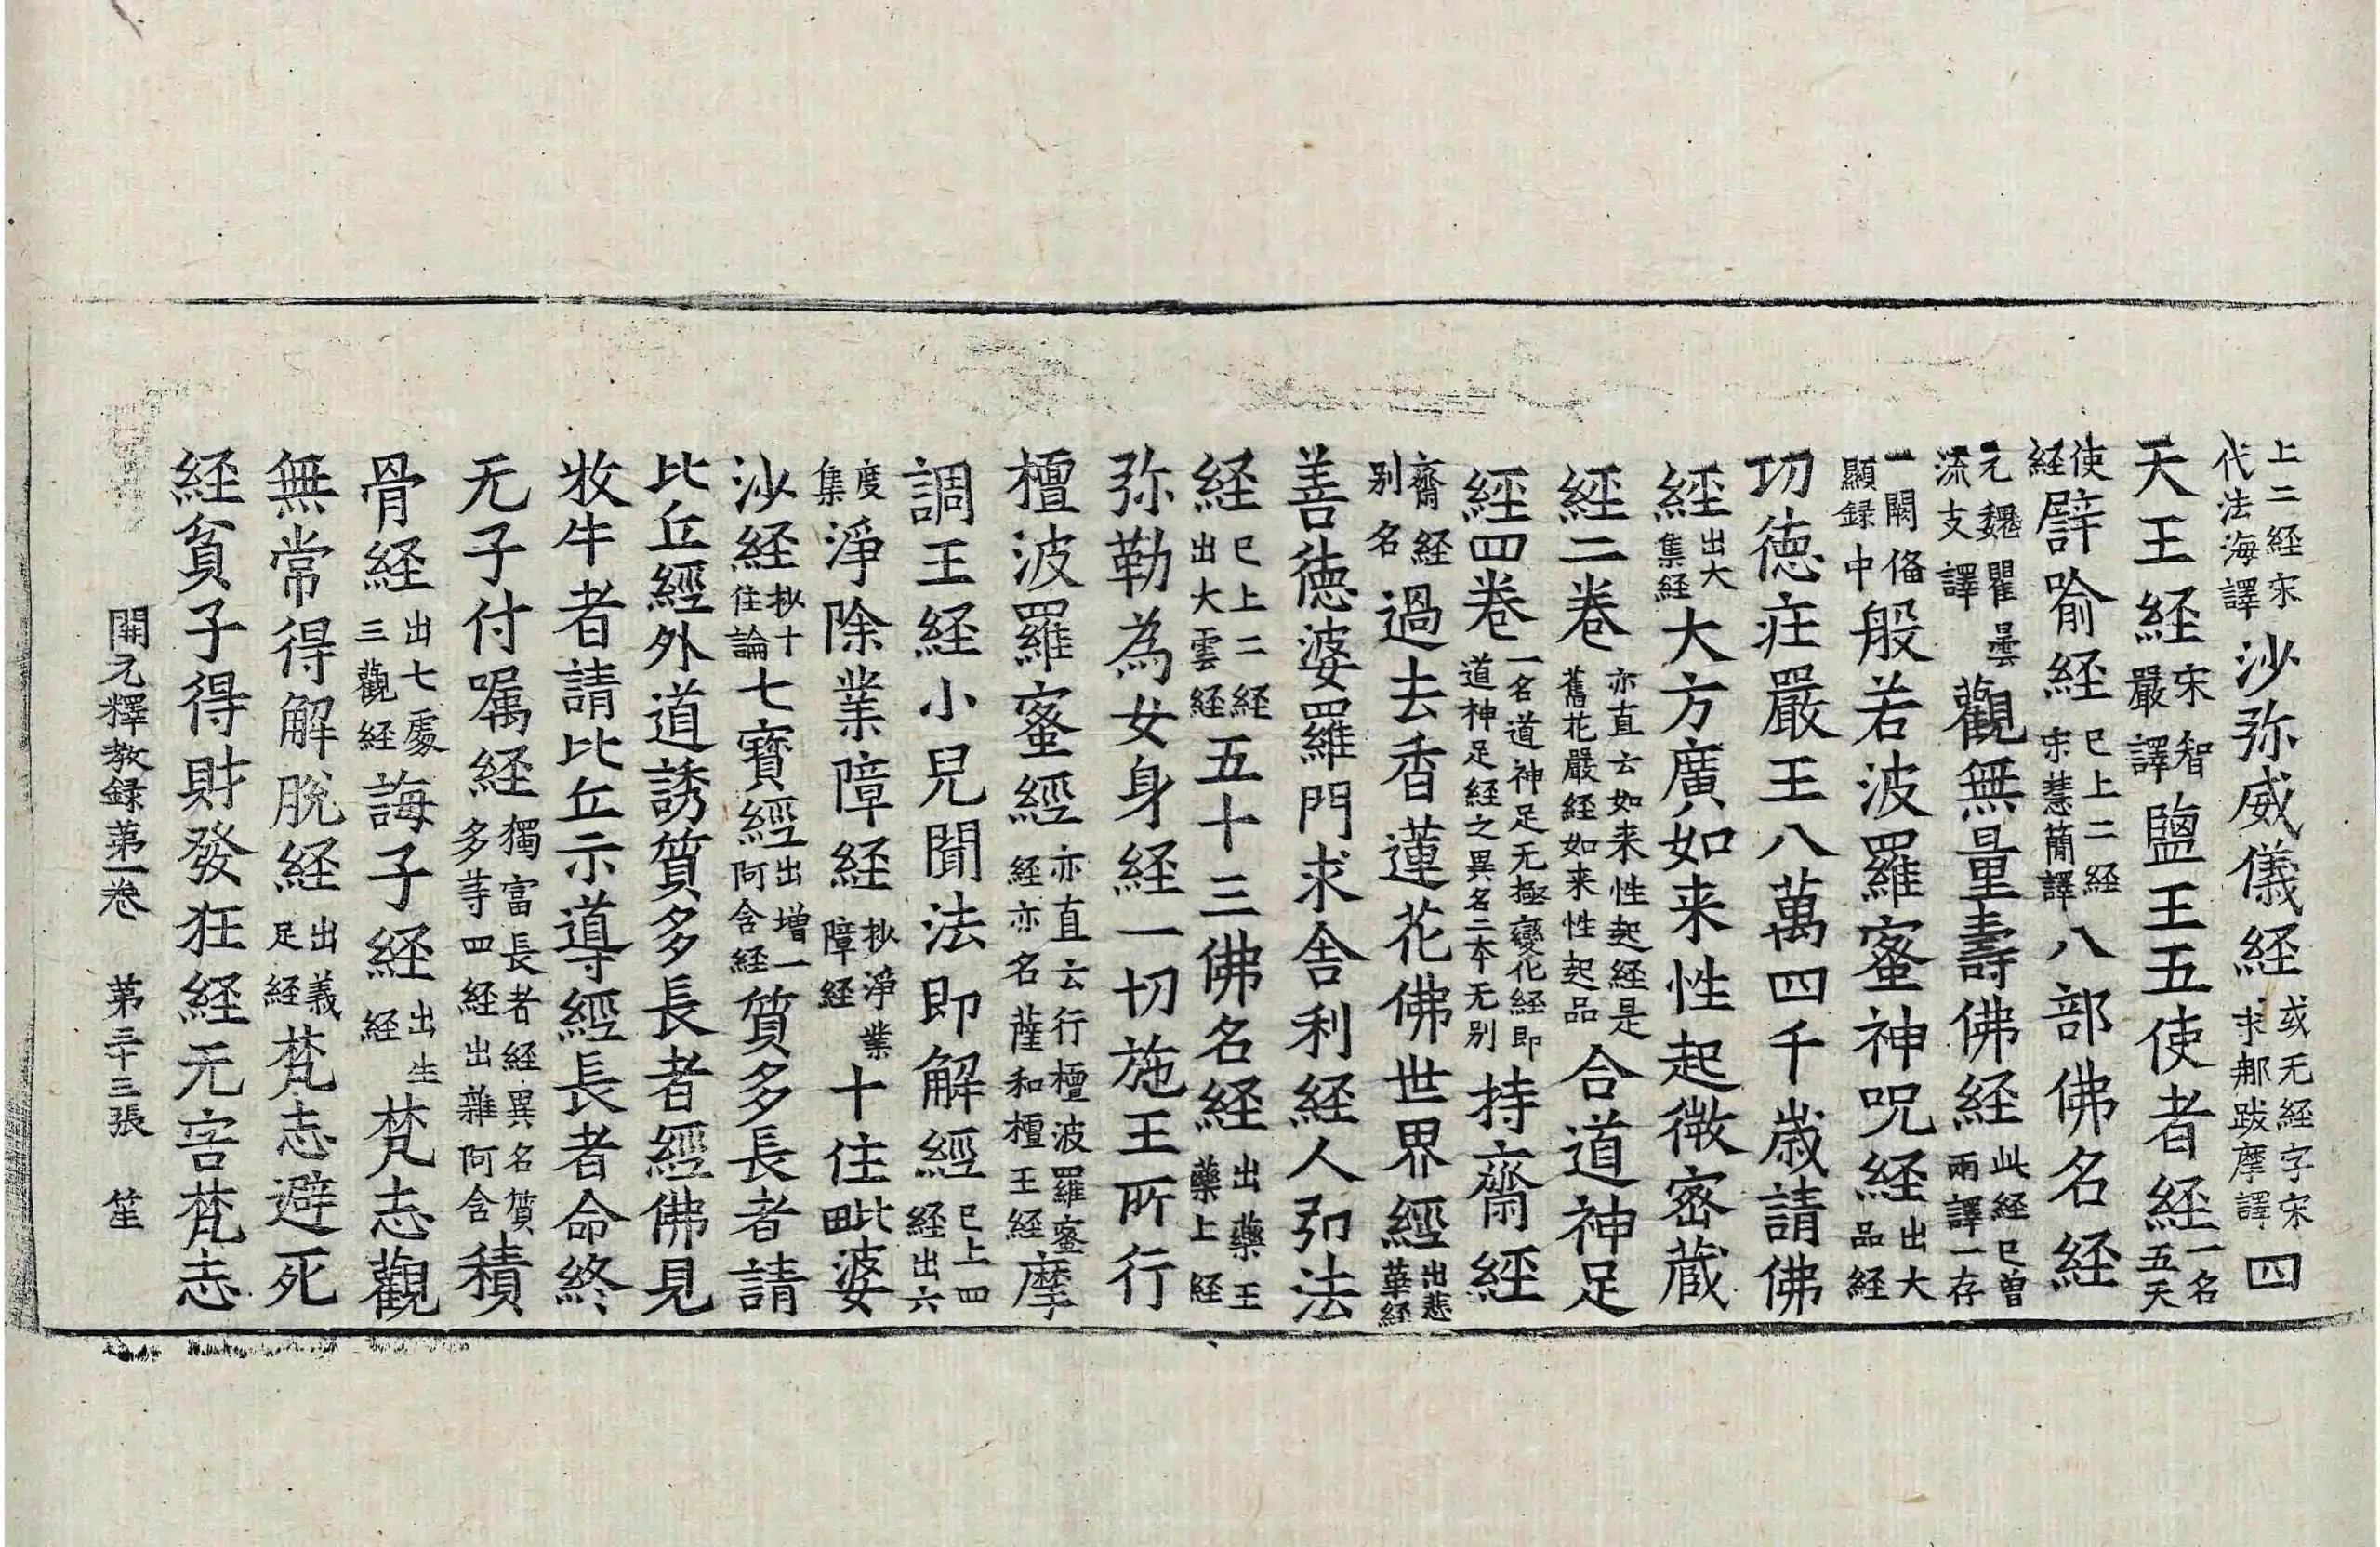 上二経宋代法海譯沙弥威儀経或无経字宋求那跋摩譯四
天王経宋智嚴譯鹽王五使者経一名五天
使経譬喻経已上二経宋慧簡譯八部佛名経
元魏瞿曇流支譯觀無量壽佛経此経已曽兩譯一存
一闕俻顯録中般若波羅蜜神呪経出大品経
功徳荘嚴王八萬四千歳請佛
經出大集経大方廣如来性起微密蔵
經二卷亦直云如来性起経是舊花嚴経如来性起品合道神足
經四卷一名道神足无極變化経即道神足経之異名二本无别持齋經
齋経别名過去香蓮花佛世界經出悲華経
善徳婆羅門求舎利経人弘法
経已上二経出大雲経五十三佛名経出藥王藥上経
弥勒為女身経一切施王所行
檀波羅蜜經亦直云行檀波羅蜜経亦名薩和檀王経摩
調王経小兒聞法即解經已上四経出六
度集淨除業障経抄淨業障経十住毗婆
沙経抄十住論七寳經出增一阿含経質多長者請
比丘經外道誘質多長者經佛見
牧牛者請比丘示導經長者命終
无子付嘱経獨富長者経異名質多䓁四経出雜阿含積
骨経出七處三觀経誨子経出生経梵志觀
無常得解脫経出義足経梵志避死
経貧子得財發狂経无害梵志
開元釋教録苐一卷　苐三十三張　笙